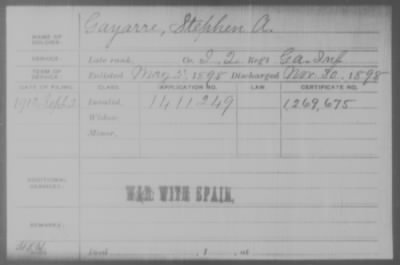 NAME OF SOLDIER: Gayarre, Stephen A.
SERVICE: Late rank, Co. I, 2 Reg't Ga. Inf.
TERM OF SERVICE: Enlisted May 2, 1898 Discharged Nov. 30, 1898
DATE OF FILING. CLASS APPLICATION NO. LAW CERTIFICATE NO.
Invalid, 1411249 1,269,675
Widow,
Minor,
ADDITIONAL SERVICES:
WAR WITH SPAIN.
REMARKS:
Died , 1 , at